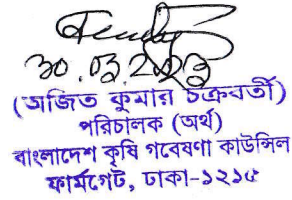 (অজিত কুমার চক্রবর্তী)
পরিচালক (অর্থ)
বাংলাদেশ কৃষি গবেষণা কাউন্সিল
ফার্মগেট, ঢাকা-১২১৫